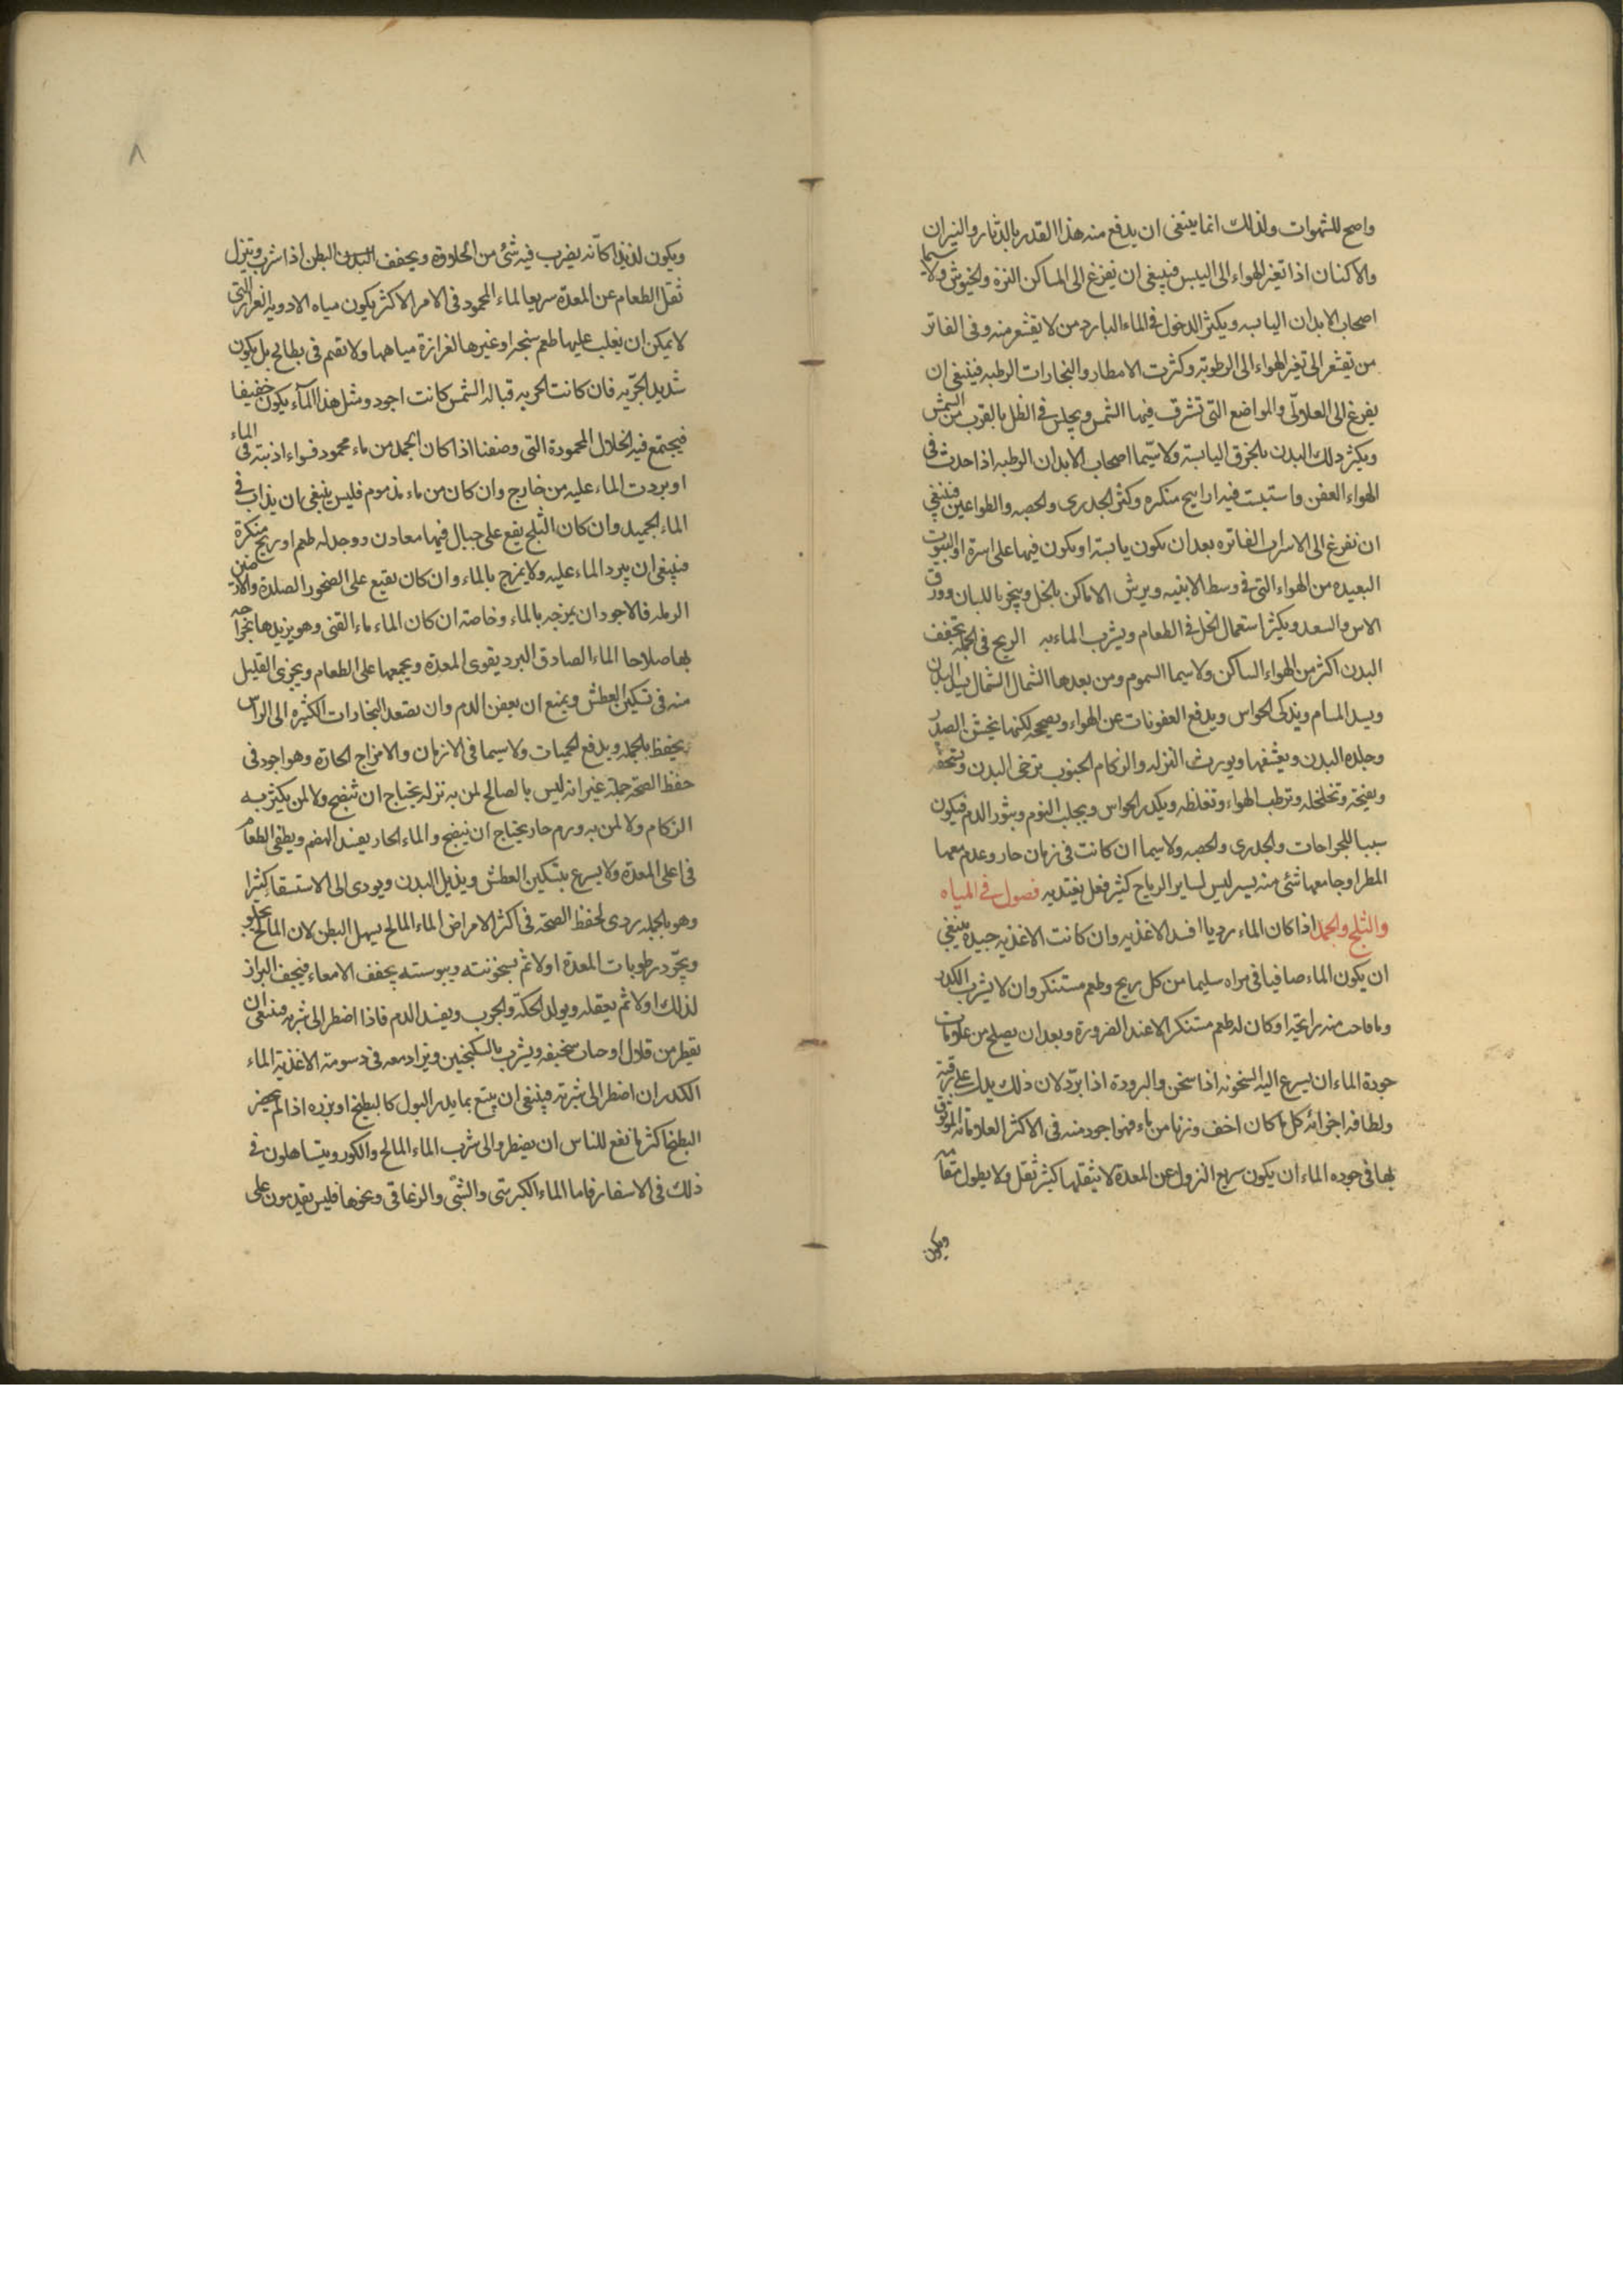 واصح للشهوات ولذلك انما ينبغى ان يدفع منه هذا القدر بالدثار والنيران
والاكنان اذا تغير الهواء الى اليبس فينبغى ان يفزغ الى المساكن النزة والخيوش ولا سيما
اصحاب الابدان اليابسه ويكثر الدخول فى الماء البارد من لا يقشعر منه وفى الفاتر
من يقشعر الى تغير الهواء الى الرطوبة وكثرت الامطار والبخارات الرطبه فينبغى ان
يفرغ الى العلالى والمواضع التى تشرق فيها الشمس ويجلس فى الظل بالقرب من الشمس
ويكثر دلك البدن بالخرق اليابسة ولا سيّما اصحاب الابدان الرطبه اذا حدث فى
الهواء العفن واستبنت فيه اراييح منكره وكثر الجدرى والحصبه والطواعين فينبغى
ان نفرغ الى الاسراب الفاتره بعد ان يكون يابسة او يكون فيها على اسرة او البيوت
البعيده من الهواء التى فى وسط الابنيه ويرش الاماكن بالخل ويبخر باللبان وورق
الاس والسعد ويكثر استعمال الخل فى الطعام ويشرب الماء به الريح فى الجمله تجفف
البدن اكثر من الهواء الساكن ولا سيما السموم ومن بعدها الشمال الشمال يسيل البدن
ويسد المسام ويذكى الحواس ويدفع العفونات عن الهواء ويصححه لكنها يخشن الصدر
وجلده البدن ويقشفها ويورث النزله والزكام الجنوب ترخى البدن وتسخنه
ويفتحه وتخلخله وترطب الهواء وتغلظه ويكدر الحواس ويجلب النوم ويثور الدم فيكون
سببا للجراحات والجدرى والحصبه ولا سيما ان كانت فى زمان حار وعدم معها
المطر او جا معها شئ منه يسير ليس لساير الرياح كثير فعل يعتد به فصول فى المياه
والثلج والجمد اذا كان الماء رديا افسد الاغذيه وان كانت الاغذيه جيدة ينبغى
ان يكون الماء صافيا فى مراه سليما من كل ريح وطعم مستنكر وان لا يشرب الكدر
وما فاحت منه رايحة او كان له طعم مستنكر الا عند الضرورة وبعد ان يصلح من علامات
جودة الماء ان يسرع اليه السخونه اذا سخن والبرودة اذا برّد لان ذلك يدل على رقته
ولطافه اجزائه كل ما كان اخف وزنا من ماء فهو اجود منه فى الاكثر العلاماته الموثق
بها فى جوده الماء ان يكون سريع النزول عن المعدة لا يثقلها كثير ثقل ولا يطول مقامه
ويكون
٨
ويكون لذيذا كانّه يضرب فيه شئ من الحلاوة ويجفف البدن البطن اذا شرب وتنزل
ثقل الطعام عن المعدة سريعا الماء المحمود فى الامر الاكثر يكون مياه الاودية الغزار التى
لا يمكن ان يغلب عليها طعم سنجه او غيرها لغزازة مياهها ولا تقيم فى بطالح بل يكون
شديد الجريه فان كانت الجريه قباله الشمس كانت اجود ومثل هذا المآء يكون خفيفا
فيجتمع فيه الخلال المحمودة التى وصفنا اذا كان الجمد من ماء محمود فسواء اذبته فى الماء
او بردت الماء عليه من خارج وان كان من ماء مذموم فليس ينبغى ان يذاب فى
الماء الجميد وان كان الثلج يقع على جبال فيها معادن ووجد له طعم او ريح منكرة
فينبغى ان يبرد الماء عليه ولا يمزج بالماء وان كان يقيع على الصخور الصلدة والارضين
الرمله فالاجود ان يمزجه بالماء وخاصة ان كان الماء ماء القنى وهو يزيدها
بها صلاحا الماء الصادق البرد يقوى المعدة ويجمعها على الطعام ويجزى القليل
منه فى تسكين العطش ويمنع ان يعفن الدم وان يصعد البخارات الكثيره الى الراس
يحفظ بالجمله ويدفع الحميات ولا سيما فى الازمان والامزاج الحارة وهو اجود فى
حفظ الصحة جملة غير انه ليس بالصالح لمن به نزله يحتاج ان تنضج ولا لمن يكثر به
الزكام ولا لمن به ورم حار يحتاج ان ينضج والماء الحار يفسد الهضم ويطفى الطعام
فى اعلى المعدة ولا يسرع بتسكين العطش ويذيل البدن ويودى الى الاستسقا كثيرا
وهو بالجمله ردى لحفظ الصحة فى اكثر الامراض الماء المالح يسهل البطن لان المالح يجلو
ويجّرد رطوبات المعدة اولا ثم بسخونته ويبوسته يجفف الامعاء فيجف البراز
لذلك اولا ثم يعقله ويولد الحكّة والجرب ويفسد الدم فاذا اضطر الى شربه فينبغى ان
يقطر من قلال او حباب سخيفه ويشرب بالسكنجبين ويزاد معه فى دسومة الاغذية الماء
الكدر ان اضطر الى شربه فينبغى ان يتبع بما يدر البول كالبطيخ او بزره اذا لم يحضر
البطيخ اكثر ما نفع للناس ان يضطروا الى شرب الماء المالح والكدر ويتساهلون فى
ذلك فى الاسفار فاما الماء الكبريتى والشبّى والزغاقى ونحوها فليس يقدمون على